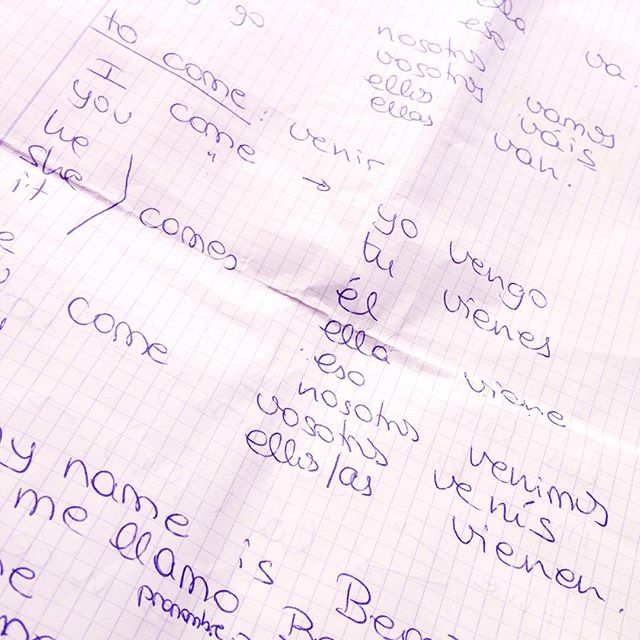 go
ella
eso
nosotros
vosotros
ellos
ellas
va.
vamos
váis
van.
to come : venir
I
you come
he " →
she
it
comes
come
yo vengo
tu vienes
él
ella viene
eso
nosotros venimos
vosotros venís
ellos/as vienen.
my name is
me llamo
pronombre